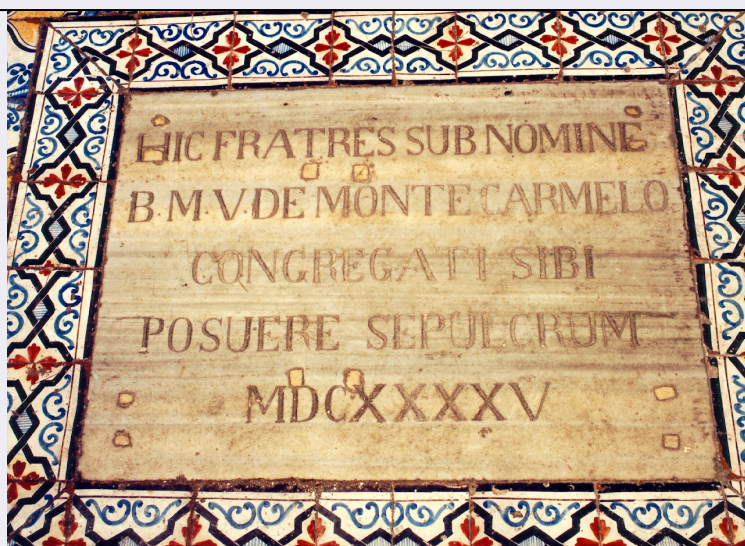 HIC FRATRES SUB NOMINE
B·M·V·DE MONTE CARMELO
CONGREGATI SIBI
POSUERE SEPULCRUM
MDCXXXXV